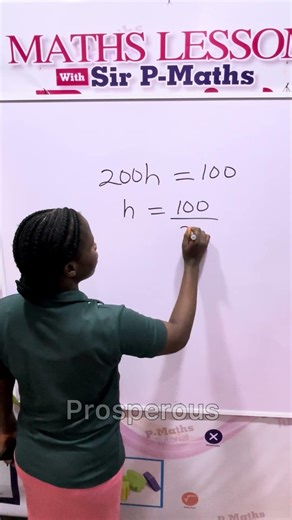 MATHS LESSON
With Sir P-Maths
200h = 100
h = 100
Prosperous
P-Maths